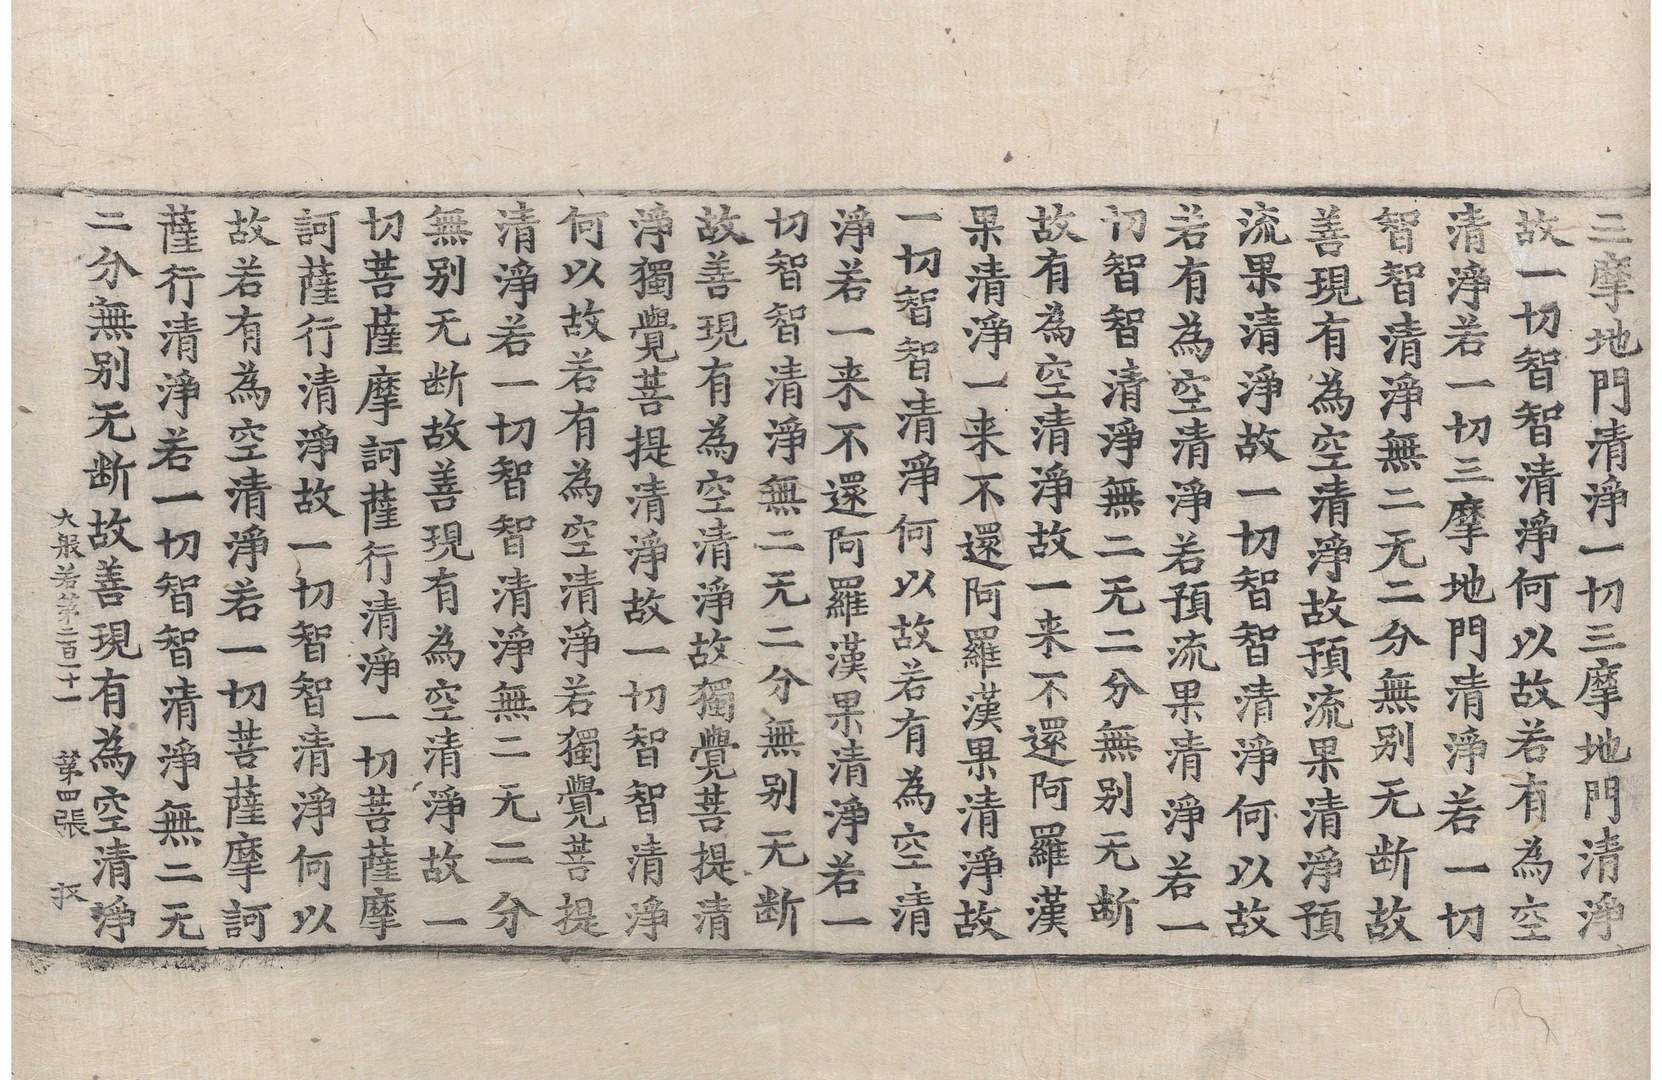 三摩地門清淨一切三摩地門清淨
故一切智智清淨何以故若有為空
清淨若一切三摩地門清淨若一切
智智清淨無二无二分無别无断故
善現有為空清淨故預流果清淨預
流果清淨故一切智智清淨何以故
若有為空清淨若預流果清淨若一
切智智清淨無二无二分無别无断
故有為空清淨故一来不還阿羅漢
果清淨一来不還阿羅漢果清淨故
一切智智清淨何以故若有為空清
淨若一来不還阿羅漢果清淨若一
切智智清淨無二无二分無别无断
故善現有為空清淨故獨覺菩提清
淨獨覺菩提清淨故一切智智清淨
何以故若有為空清淨若獨覺菩提
清淨若一切智智清淨無二无二分
無别无断故善現有為空清淨故一
切菩薩摩訶薩行清淨一切菩薩摩
訶薩行清淨故一切智智清淨何以
故若有為空清淨若一切菩薩摩訶
薩行清淨若一切智智清淨無二无
二分無别无断故善現有為空清淨
大般若第二百二十一 第四張